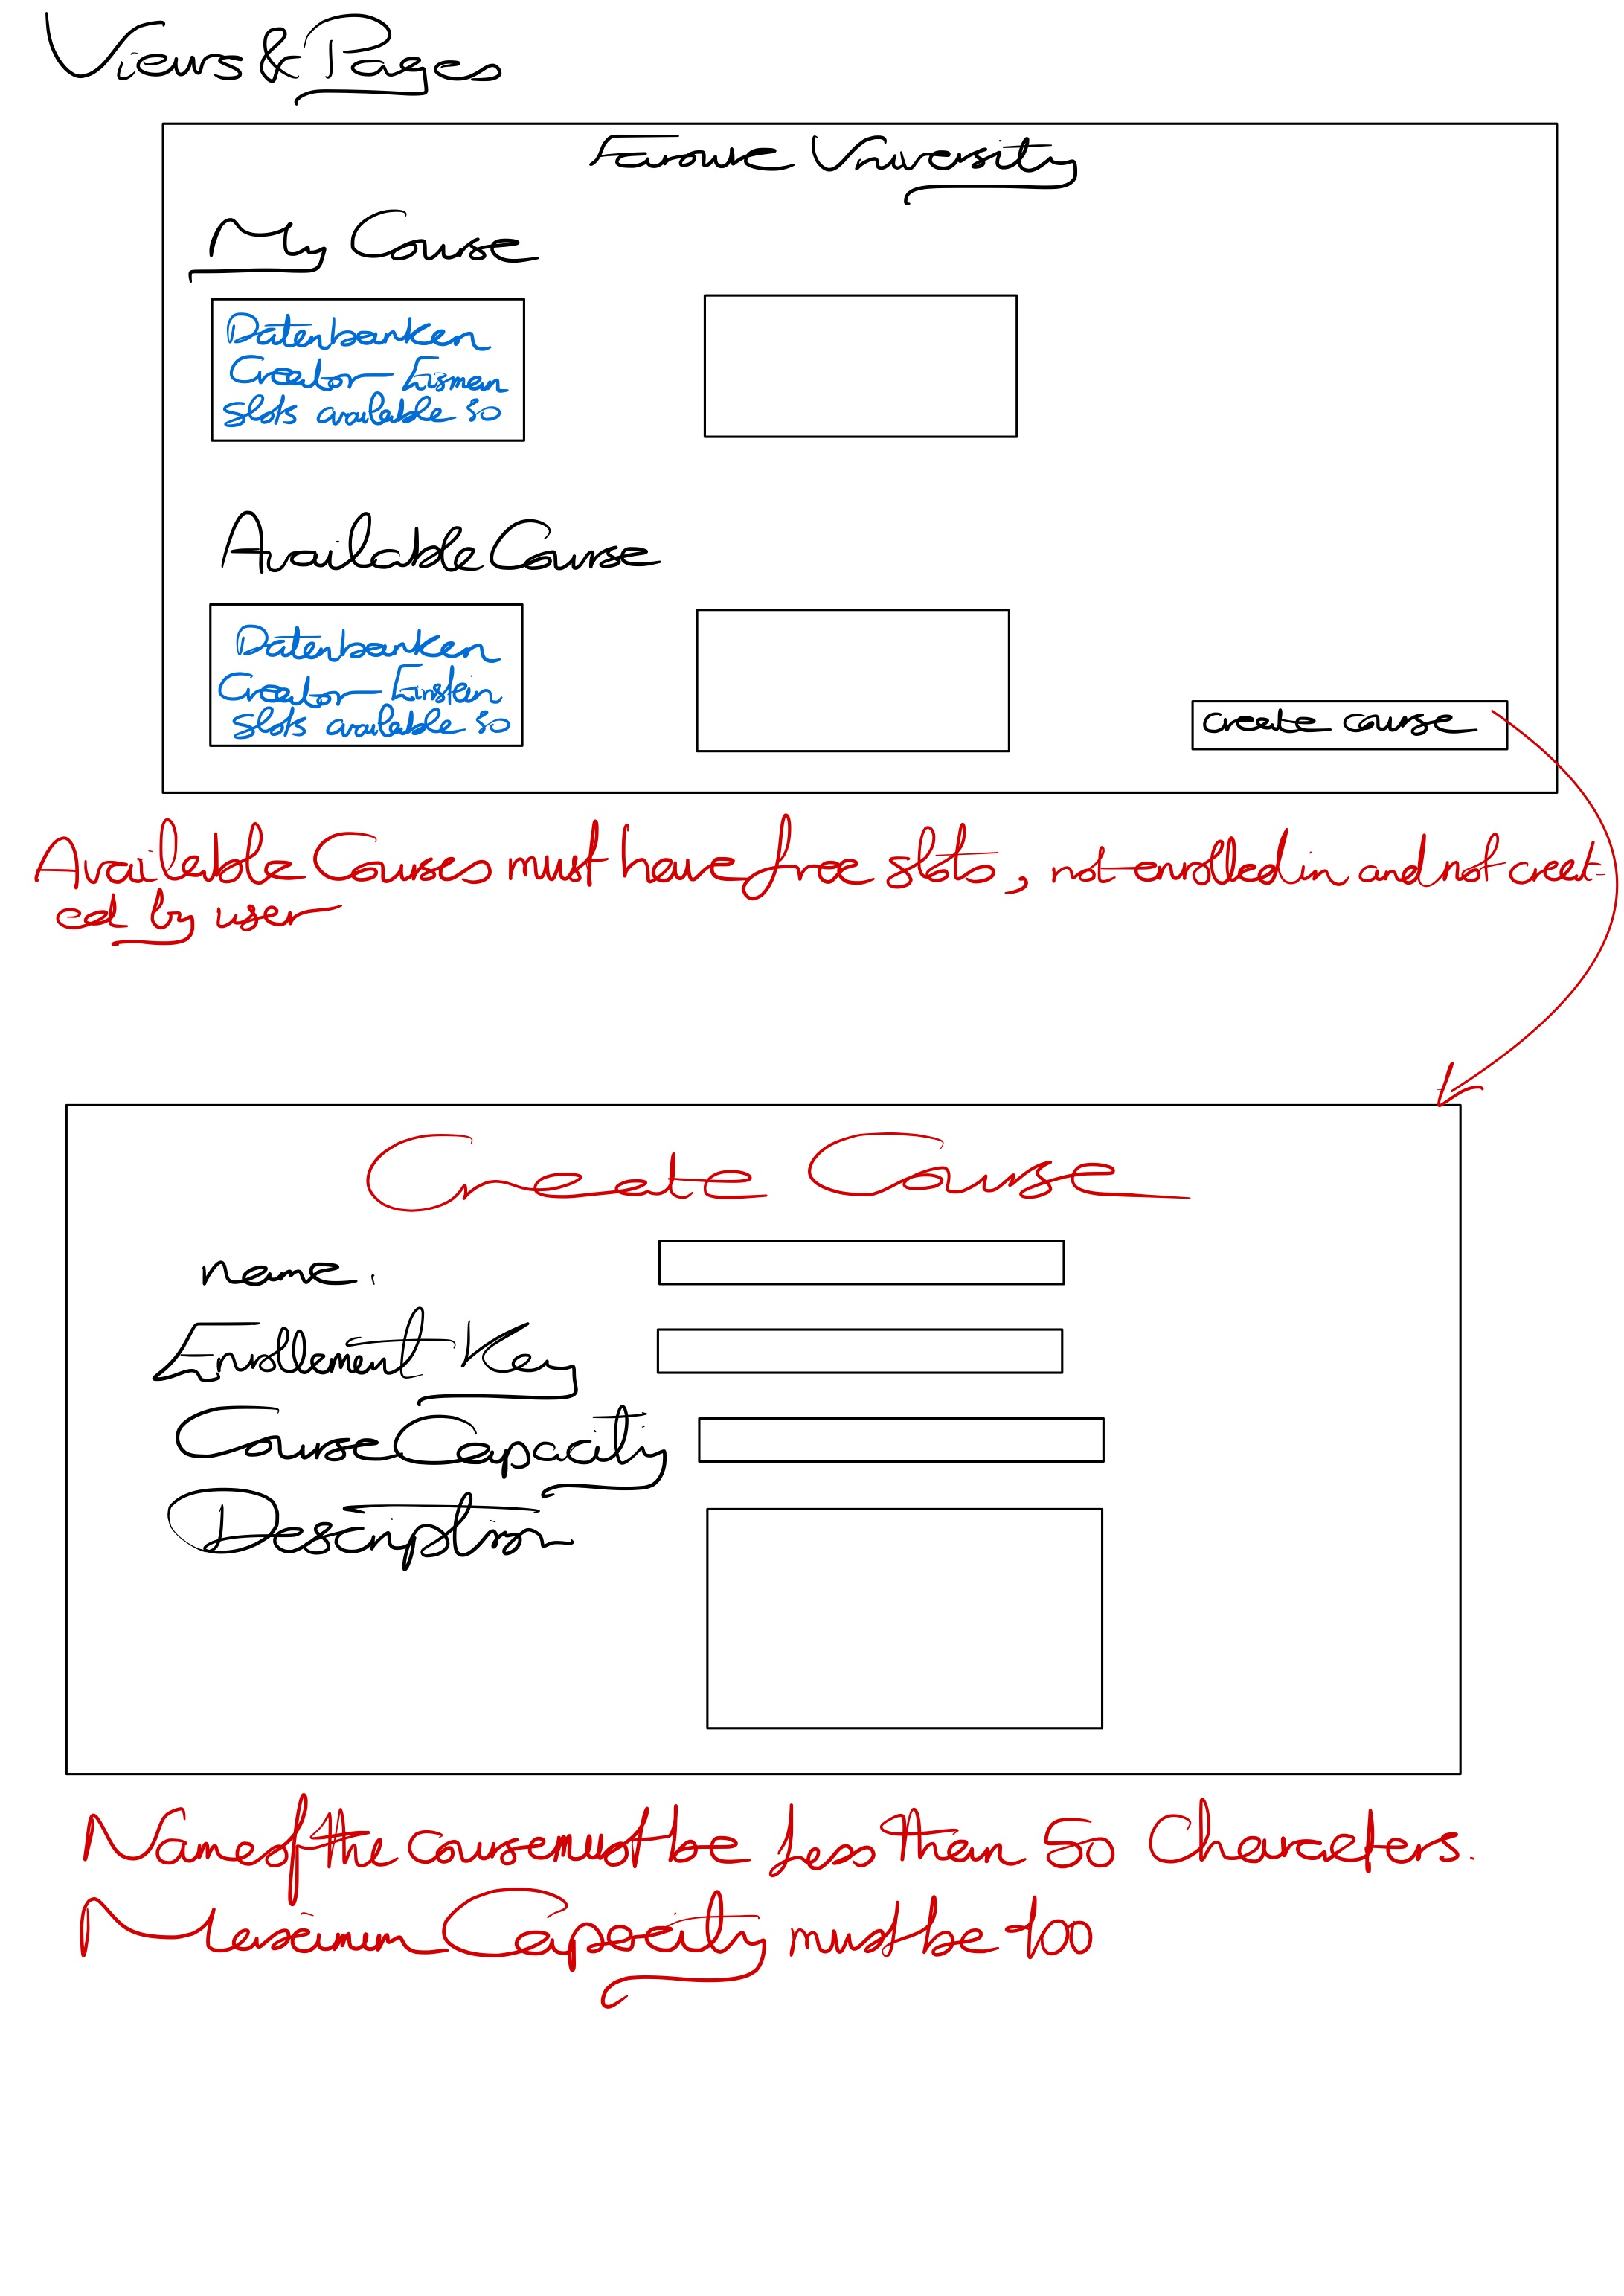 Views & Pages
University
My Course
Datenbanken
Creator - Eisman
Slots available 50
Available Course
Datenbanken
Creator - Einstein
Slots available 50
create course
Available Courses must have free slots, not enrolled in and not creat-
ed by user
Create Course
name.
Enrollement Key
Course Capacity
Description
Name of the course must be less than 50 Characters.
Maximum Capacity must be 100